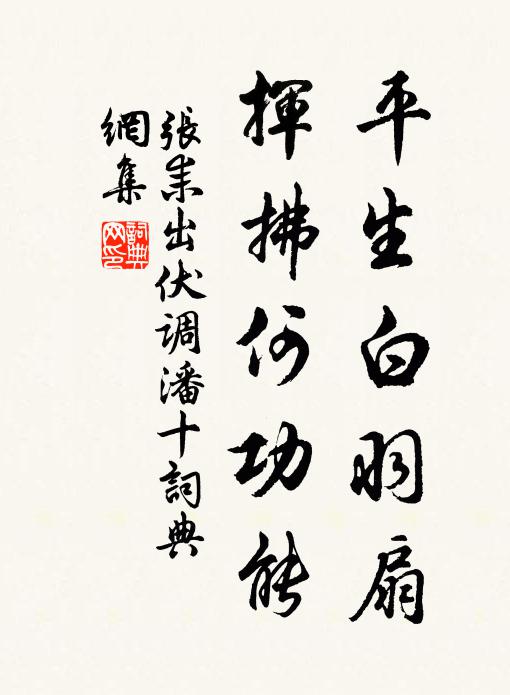 平生白羽扇
揮拂何功能
張耒出伏调潘十詞典
網集
詞典
网印